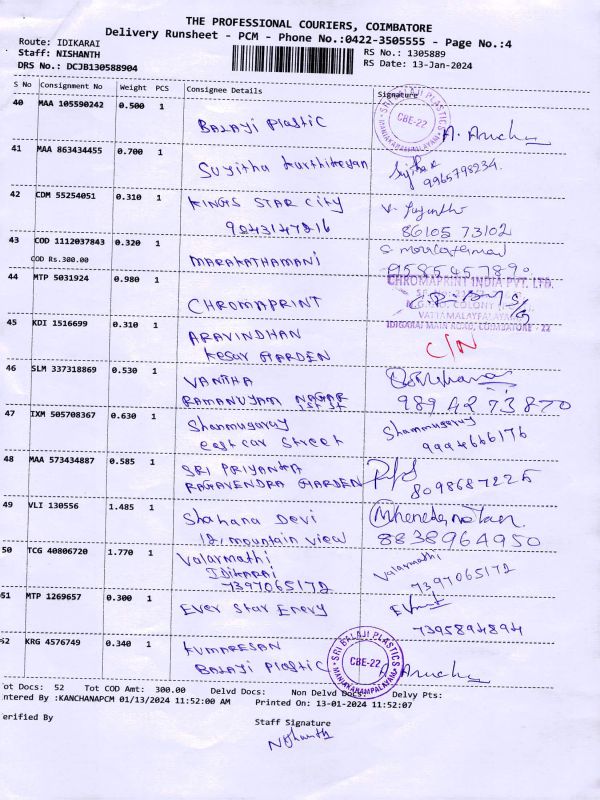 THE PROFESSIONAL COURIERS, COIMBATORE
Delivery Runsheet - PCM - Phone No.:0422-3505555 - Page No.:4
Route: IDIKARAI
RS No.: 1305889
Staff: NISHANTH
RS Date: 13-Jan-2024
DRS No.: DCJB130588904
S No Consignment No Weight PCS Consignee Details Signature
40 MAA 105590242 0.500 1 Balaji Plastic
SRI BALAJI PLASTICS CBE-22 MANIAKARAMPALAYAM
41 MAA 863434455 0.700 1 Sujitha Karthikeyan
9965798234
42 CDM 55254051 0.310 1 KINGS STAR City
9843147216
86105 73102
43 COD 1112037843 0.320 1 MARAKATHAMANI
COD Rs.300.00
44 MTP 5031924 0.980 1 CHROMAPRINT
CHROMAPRINT INDIA PVT. LTD.
IDIGARAI MAIN ROAD, COIMBATORE - 22
45 KDI 1516699 0.310 1 ARAVINDHAN
Kesav GARDEN
C/N
46 SLM 337318869 0.530 1 VANITHA
RAMANUJAM NAGAR
1st st
989 4273870
47 IXM 505708367 0.630 1 Shanmugaraj
east car Street
Shanmugaraj
9994666176
48 MAA 573434887 0.585 1 SRI PRIYANKA
RAGAVENDRA GARDEN
8098687225
49 VLI 130556 1.485 1 Shahana Devi
12, mountain view
8838964950
50 TCG 40806720 1.770 1 Valarmathi
IDIKARAI
7397065172
Valarmathi
7397065172
51 MTP 1269657 0.300 1 Ever Star Enery
7395894894
52 KRG 4576749 0.340 1 KUMARESAN
Balaji Plastic
SRI BALAJI PLASTICS CBE-22 MANIAKARAMPALAYAM
ot Docs: 52 Tot COD Amt: 300.00 Delvd Docs: Non Delvd Docs: Delvy Pts:
ntered By :KANCHANAPCM 01/13/2024 11:52:00 AM Printed On: 13-01-2024 11:52:07
erified By
Staff Signature
Nishanth